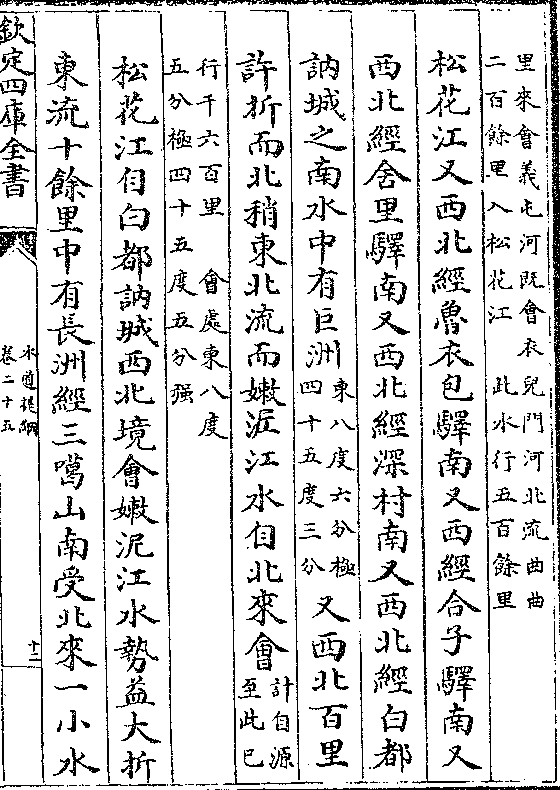 里來會義屯河既會衣兒門河北流曲曲
二百餘里入松花江　此水行五百餘里
松花江又西北經魯衣包驛南又西經合子驛南又
西北經舍里驛南又西北經深村南又西北經白都
訥城之南水中有巨洲東八度六分極四十五度三分又西北百里
許折而北稍東北流而嫩泥江水自北來會計自源至此已
行千六百里　會處東八度
五分極四十五度五分强
松花江自白都訥城西北境會嫩泥江水勢益大折
東流十餘里中有長洲經三噶山南受北來一小水
欽定四庫全書
水道提綱
卷二十五
十二